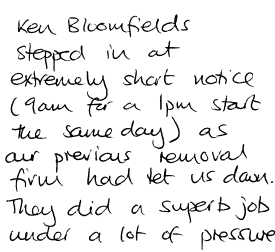 Ken Bloomfields
stepped in at
extremely short notice
(9am for a 1pm start
the same day) as
our previous removal
firm had let us down.
They did a superb job
under a lot of pressure